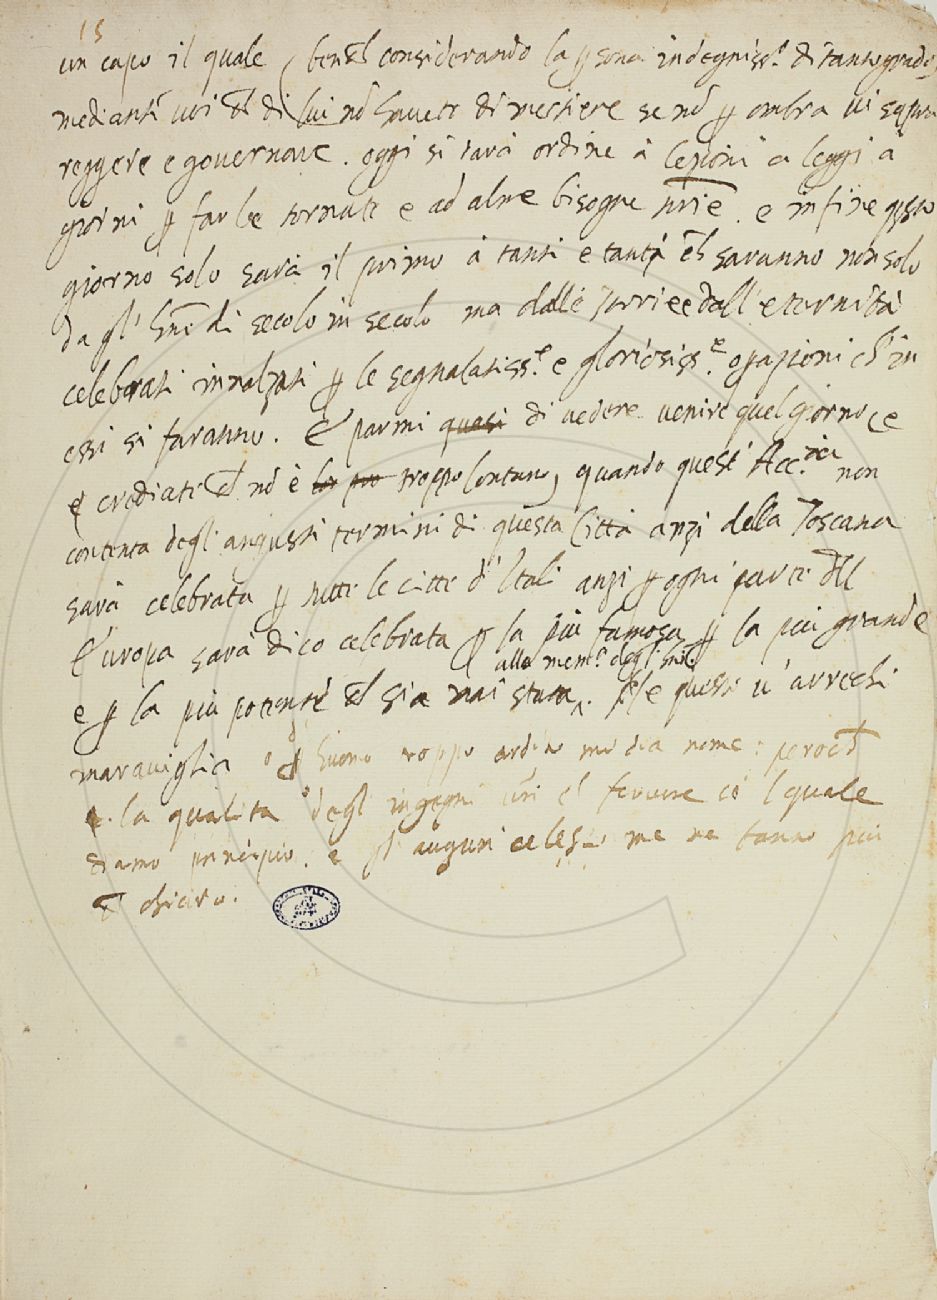 15
un capo il quale, benche considerando la psona indegniss.a di tanto grado,
mediante voi et di lui nō havete di mestiere se nō p ombra vi
reggere e governare. oggi si darà ordine à lezioni a leggi a
giorni p far le tornate e ad altre bisogne e in fine qsto
giorno solo sarà il primo à tanti e tanti ch saranno non solo
da gl' di secolo in secolo ma dalle e dall'eternità
celebrati innalzati p le segnalatiss.e e gloriosiss.e ch' in
essi si faranno. E parmi quasi di vedere venire quel giorno, e
crediate ch nō è troppo lontano, quando quest' Acc.mia non
contenta degl' angusti termini di questa Città anzi della Toscana
sarà celebrata p tutte le città d' Itali anzi p ogni parte dell
Europa sarà dico celebrata p la più famosa, p la più grande
alla mem.a degl'
e p la più potente ch sia mai stata. Ne questo v' arrechi
maraviglia o p huomo troppo ardito mi dia nome: peroch
la qualita degl ingegni vri e l' fervore cō l quale
diamo principio, e gl' auguri celesti me ne fanno più
ch chiaro.